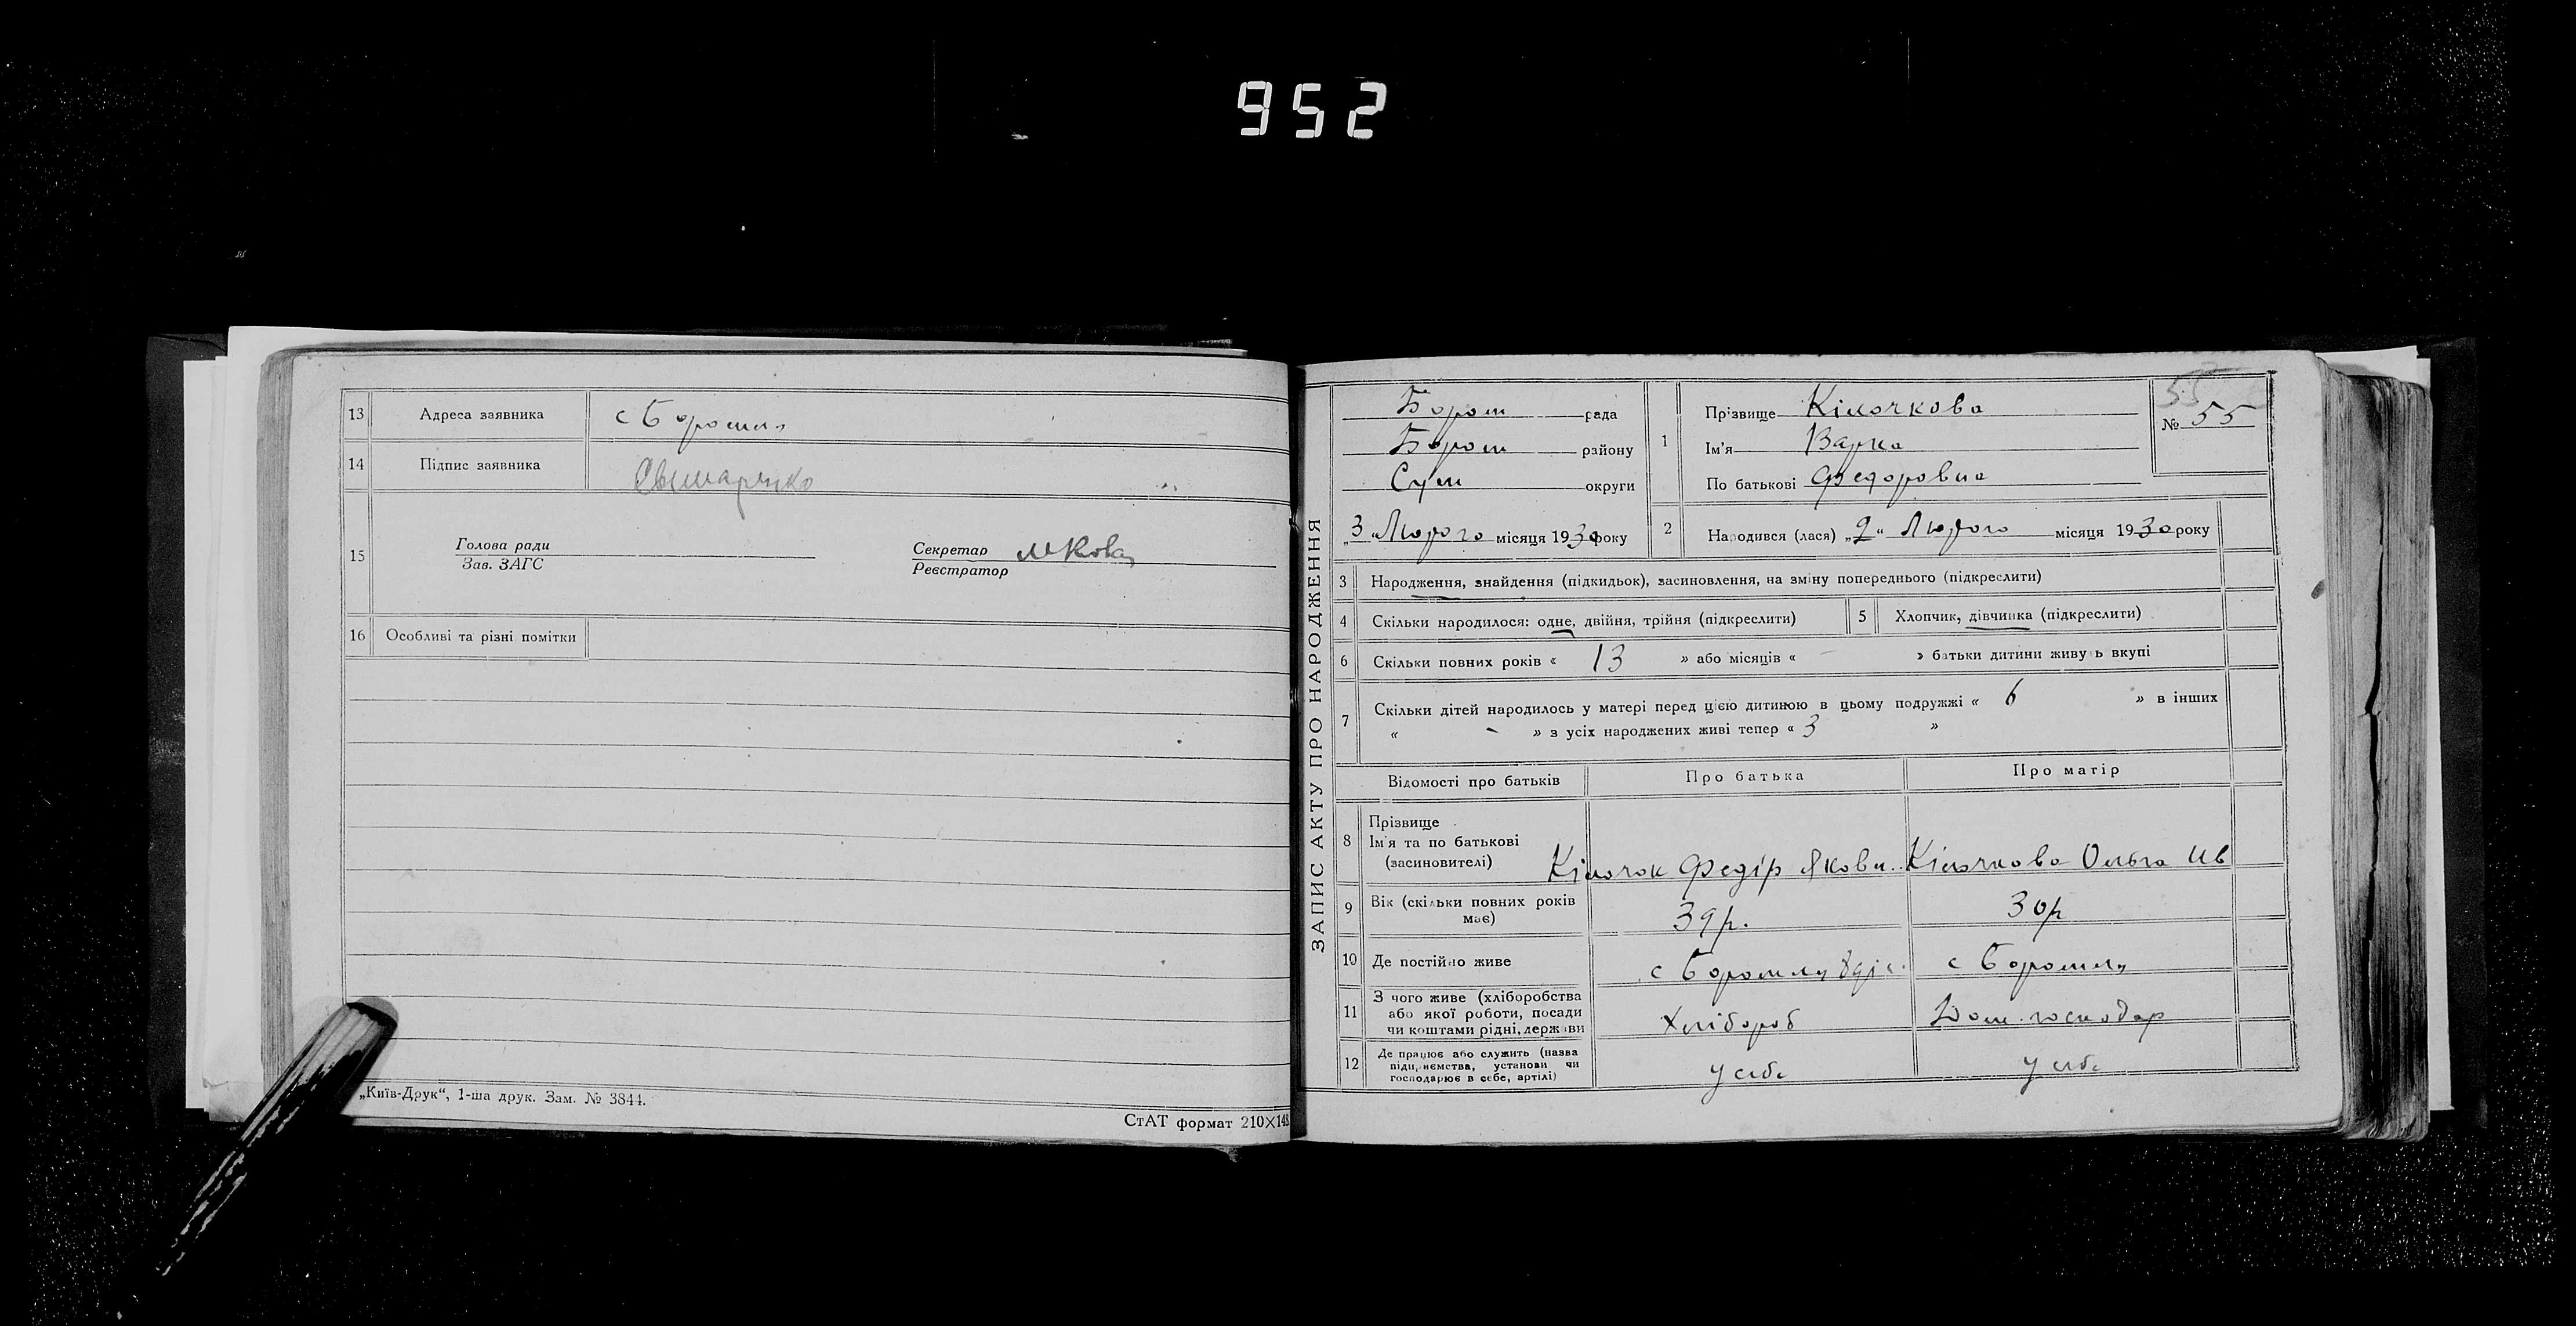 952
13 Адреса заявника с Боромля
14 Підпис заявника
15 Голова ради
Зав. ЗАГС
Секретар
Реєстратор
16 Особливі та різні помітки
„Київ-Друк“, 1-ша друк. Зам. № 3844.
СтАТ формат 210×148
ЗАПИС АКТУ ПРО НАРОДЖЕННЯ
Бором рада
Бором району
Сум округи
„3 Лютого місяця 1930 року
55
№ 55
1 Прізвище Кілочкова
Ім'я Варка
По батькові Федоровна
2 Народився (лася) „2“ Лютого місяця 1930 року
3 Народження, знайдення (підкидьок), засиновлення, на зміну попереднього (підкреслити)
4 Скільки народилося: одне, двійня, трійня (підкреслити)
5 Хлопчик, дівчинка (підкреслити)
6 Скільки повних років « 13 » або місяців « – » батьки дитини живуть вкупі
7 Скільки дітей народилось у матері перед цією дитиною в цьому подружжі « 6 » в інших
« - » з усіх народжених живі тепер « 3 »
Відомості про батьків Про батька Про матір
8 Прізвище
Ім'я та по батькові
(засиновителі)
Кілочок Федір Якови. Кілочкова Ольга Ив
9 Вік (скільки повних років
має)
39р. 30р
10 Де постійно живе с Боромля с Боромля
11 З чого живе (хліборобства
або якої роботи, посади
чи коштами рідні, держави
Хлібороб Дом. господар
12 Де працює або служить (назва
підприємства, установи чи
господарює в себе, артілі)
у себе у себе